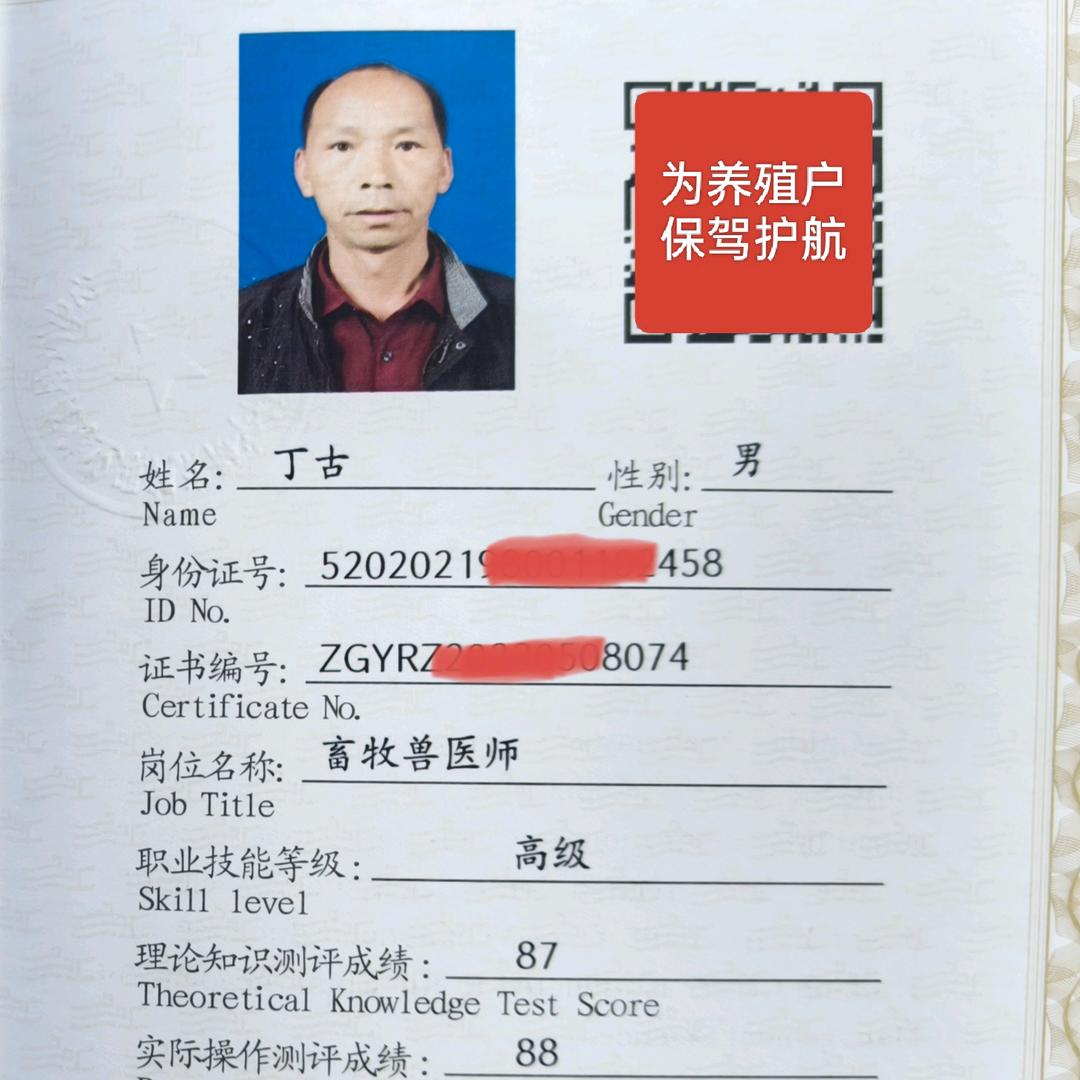 为养殖户
保驾护航
姓名: 丁古 性别: 男
Name Gender
身份证号: 52020219 458
ID No.
证书编号: ZGYRZ 8074
Certificate No.
岗位名称: 畜牧兽医师
Job Title
职业技能等级: 高级
Skill level
理论知识测评成绩: 87
Theoretical Knowledge Test Score
实际操作测评成绩: 88